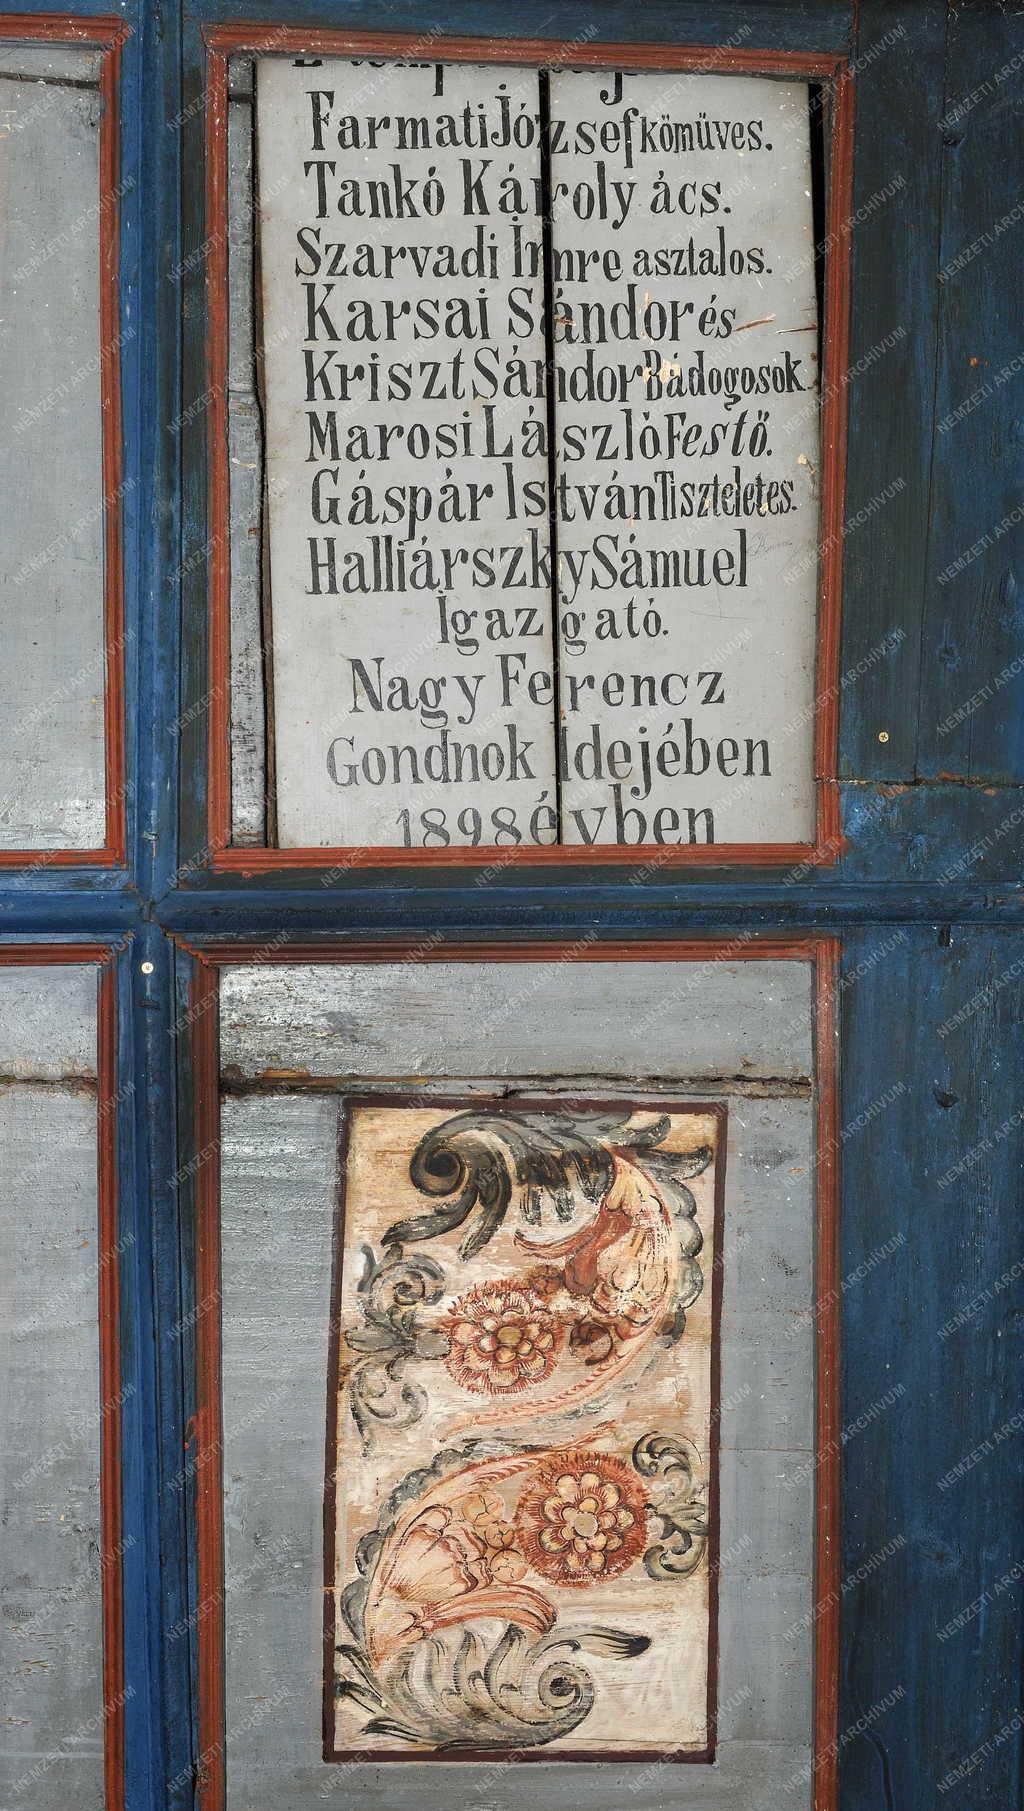 Farmati József kömüves.
Tankó Károly ács.
Szarvadi Imre asztalos.
Karsai Sándor és
Kriszt Sándor Bádogosok
Marosi László Festő.
Gáspár István Tiszteletes.
Halliárszky Sámuel
Igazgató.
Nagy Ferencz
Gondnok Idejében
1898 évben
NEMZETI ARCHÍVUM